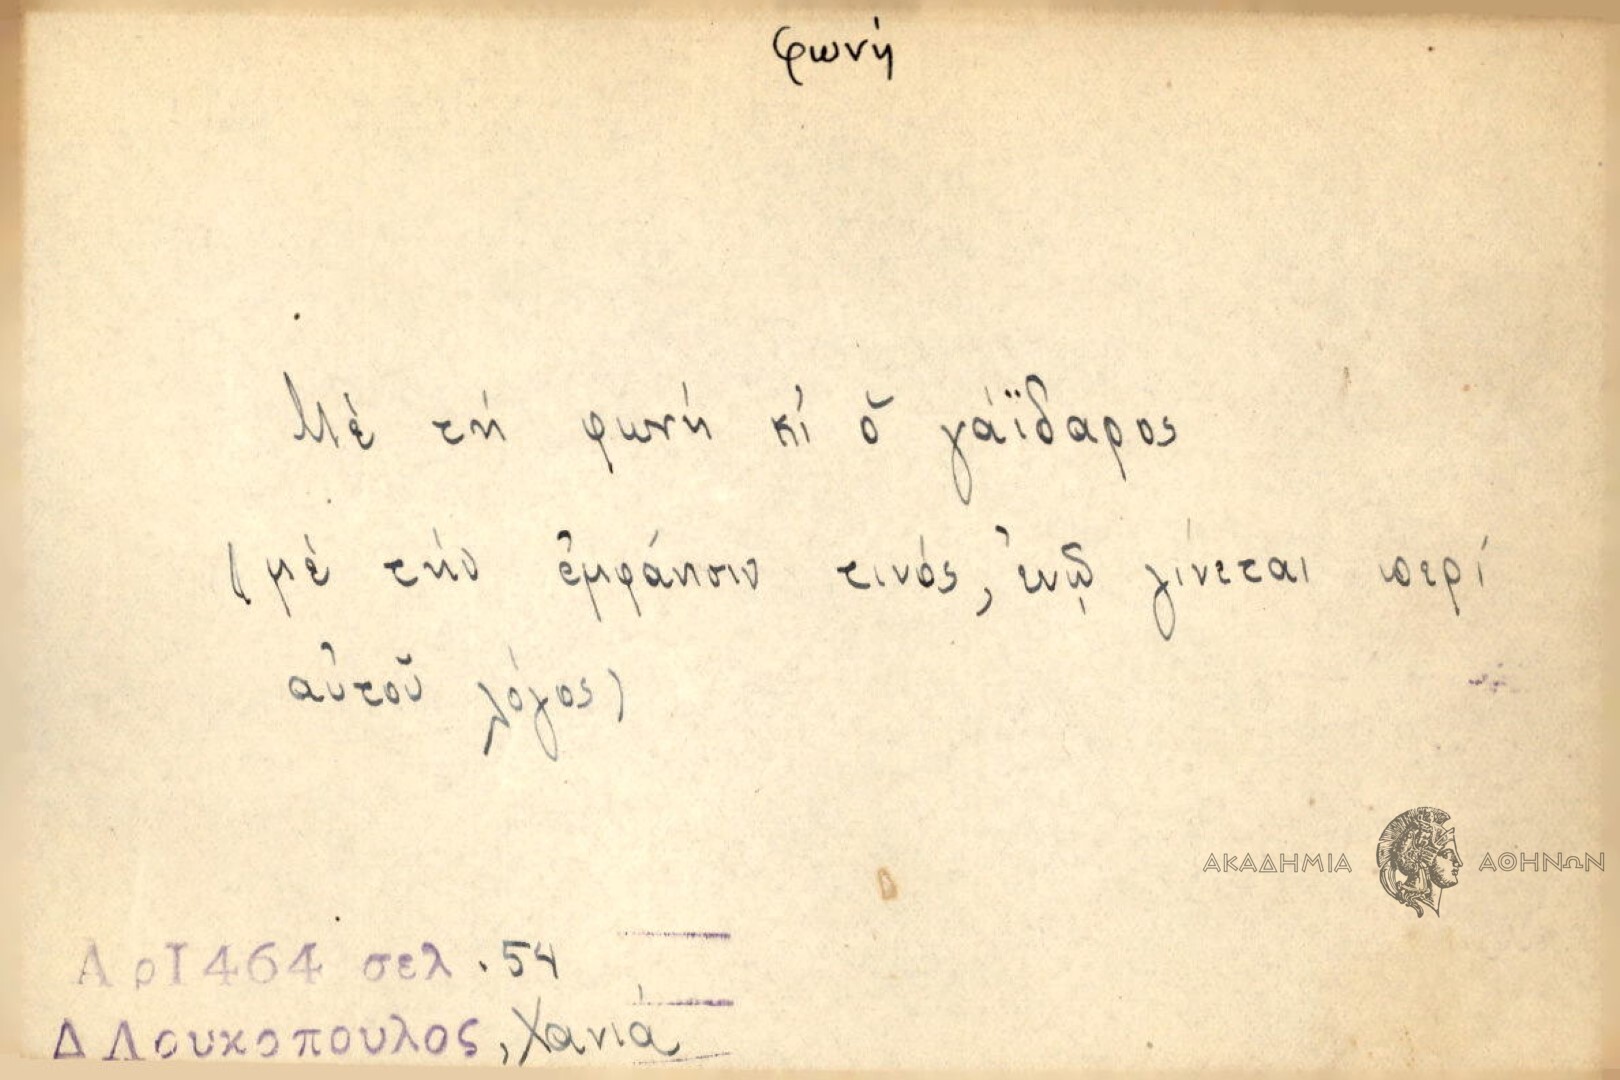 φωνή
Μὲ τὴ φωνὴ κἰ ὁ γάϊδαρος
(μὲ τὴν ἐμφάνισιν τινός, ἐνῷ γίνεται περὶ
αὐτοῦ λόγος)
ΑΚΑΔΗΜΙΑ ΑΘΗΝΩΝ
Αρ1464 σελ. 54
Δ Λουκοπουλος, Χανιά